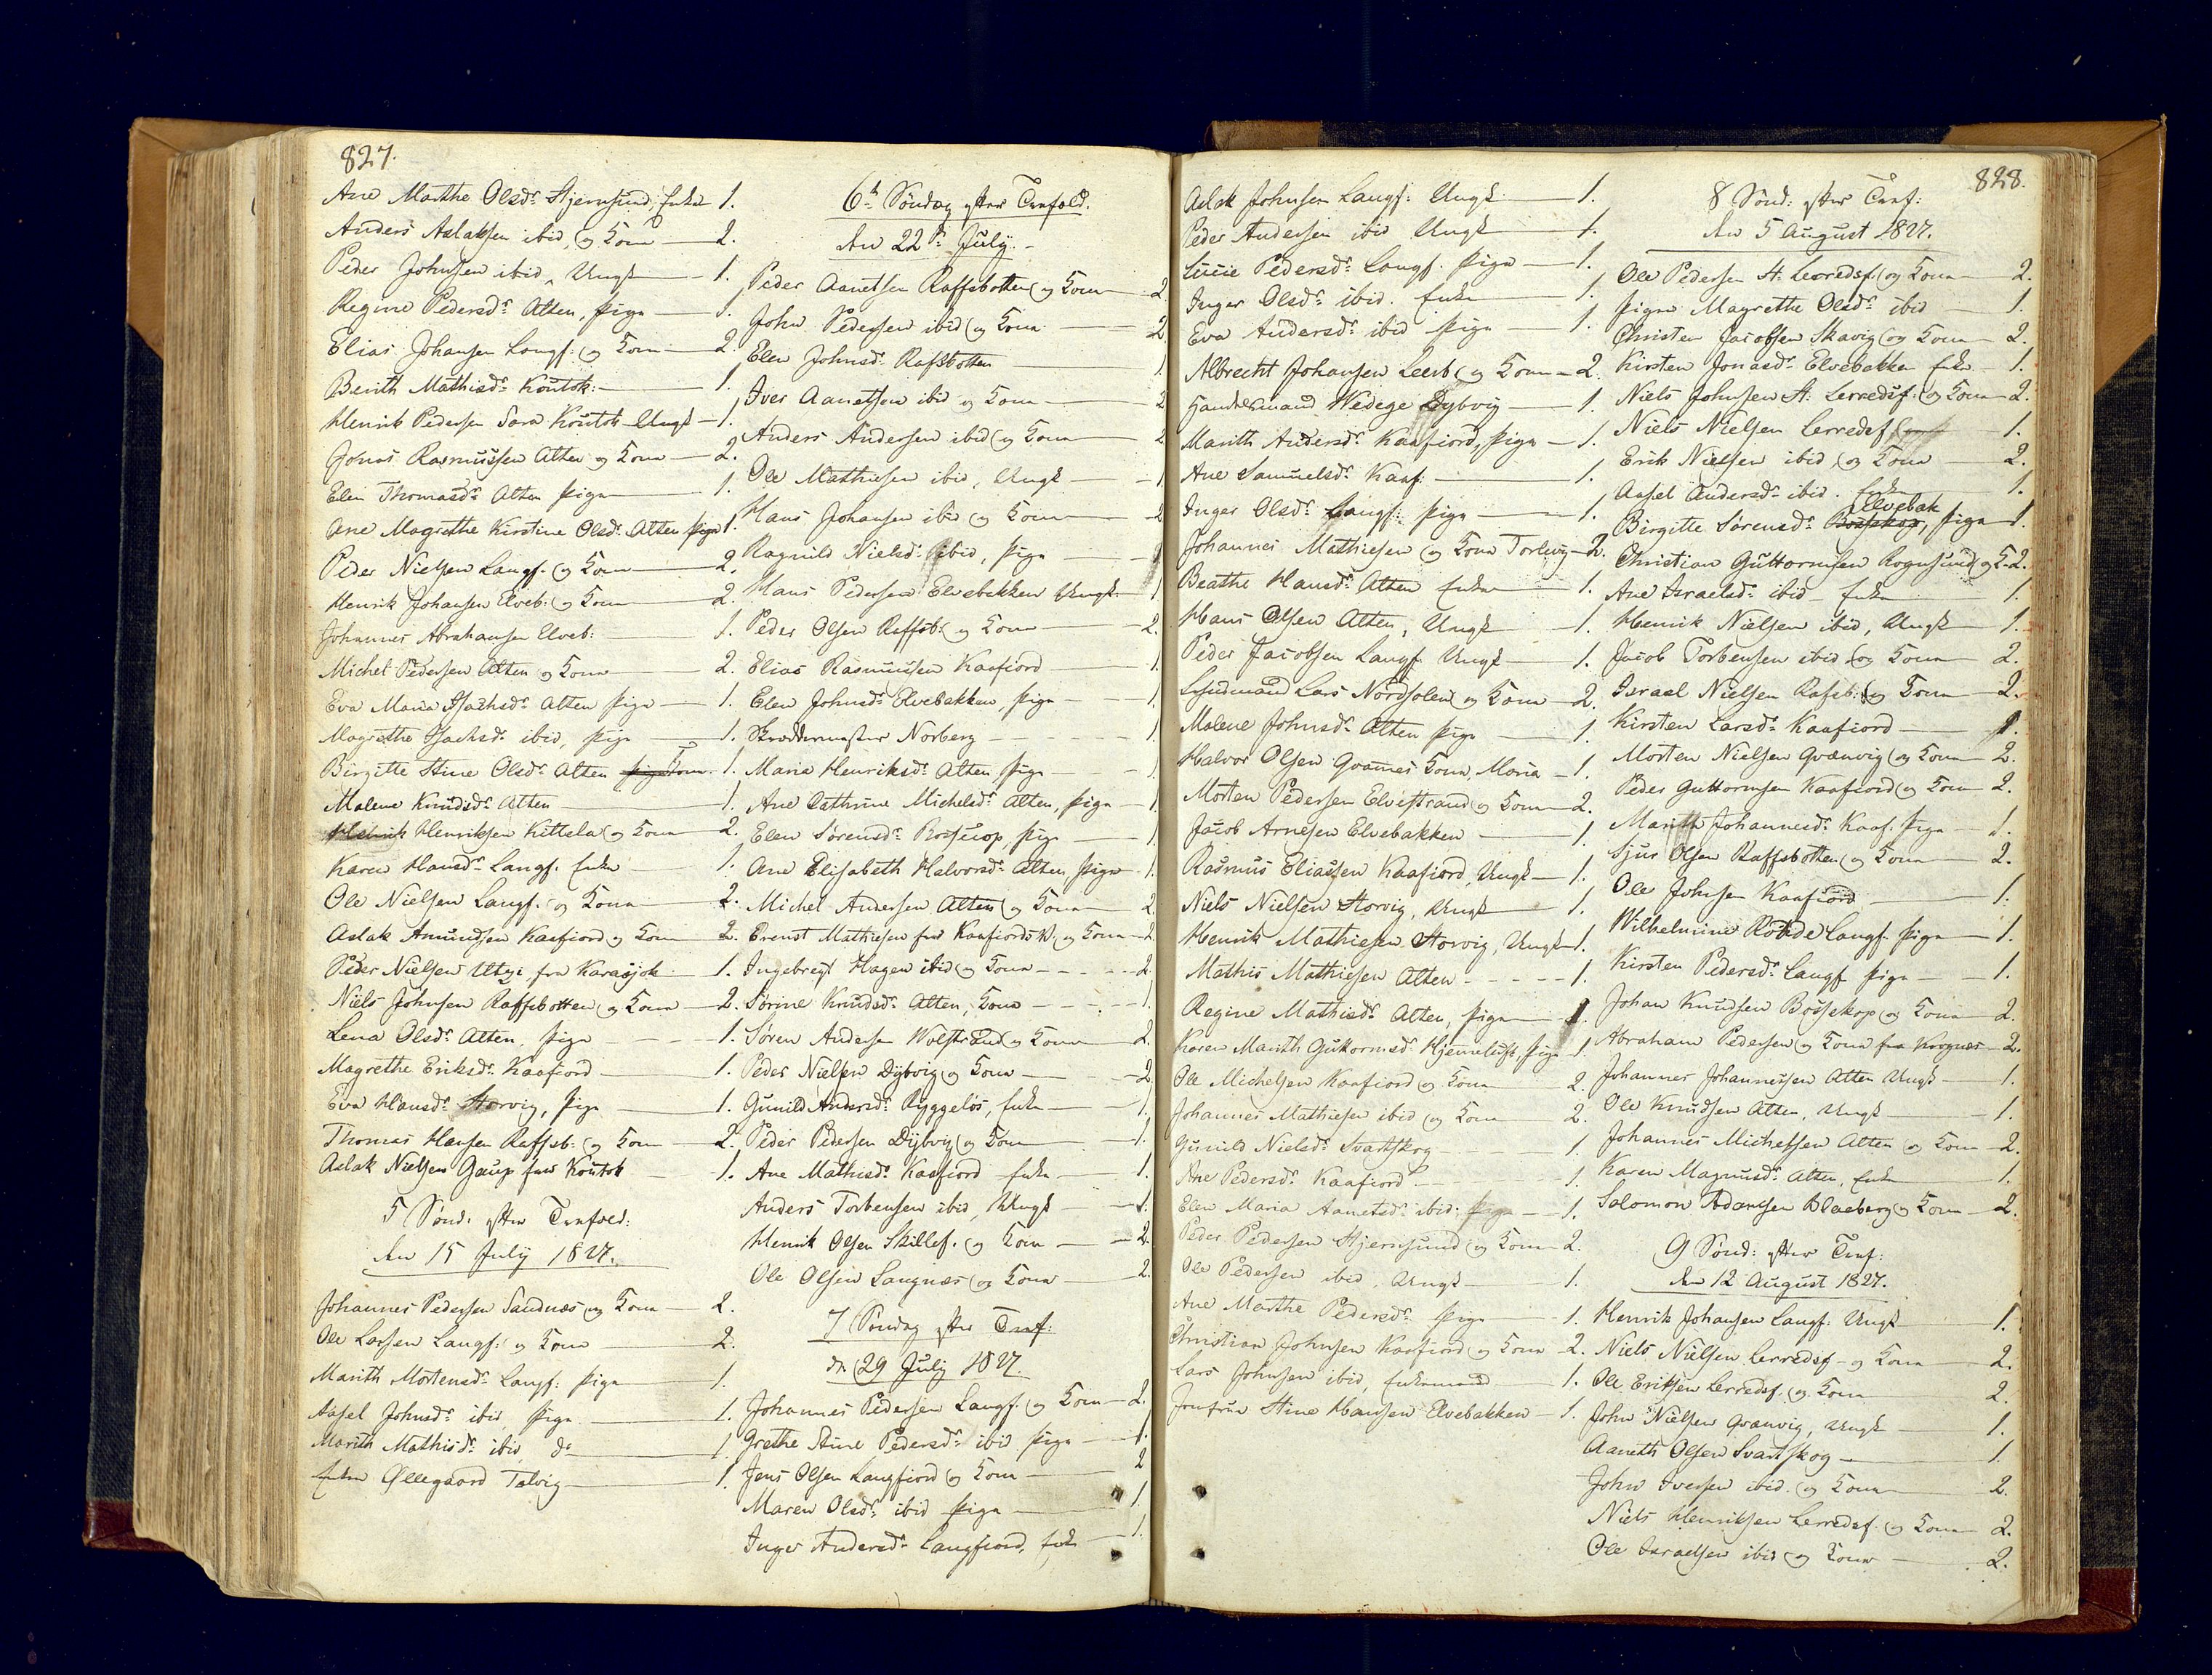 827.
Ane Marthe Olsdr. Stjernsund, Enke 1.
Anders Aslaksen ibid, og Kone 2.
Peder Johnsen ibid, Ungk 1.
Regine Pedersdr. Alten, pige 1.
Elias Johansen Langf. og Kone 2.
Berith Mathisdr. Koutok: 1.
Henrik Pedersen Sara Koutok Ungk 1.
Jonas Rasmussen Alten og Kone 2.
Elen Thomasdr. Alten pige 1.
Ane Magrethe Kirstine Olsdr. Alten pige 1.
Peder Nielsen Langf. og Kone 2.
Henrik Johansen Elveb: og Kone 2.
Johannes Abrahamsen Elveb: 1.
Michel Pedersen Alten og Kone 2.
Eva Maria Isachsdr. Alten pige 1.
Magrethe Isachsdr. ibid, pige 1.
Birgitte Stine Olsdr. Alten pige Kone 1.
Malene Knudsdr. Alten 1.
Henrik Henriksen Kittela og Kone 2.
Karen Hansdr. Langf. Enke 1.
Ole Nielsen Langf. og Kone 2.
Aslak Amundsen Kaafiord og Kone 2.
Peder Nielsen Utsi fra Karasjok 1.
Niels Johnsen Raffsbotten og Kone 2.
Lena Olsdr. Alten, pige 1.
Magrethe Eriksdr. Kaafiord 1.
Eva Hansdr. Storvig, pige 1.
Thomas Hansen Raffsb: og Kone 2.
Aslak Nielsen Gaup fra Koutok 1.
5 Sönd. efter Trefold:
den 15 July 1827.
Johannes Pedersen Sandnæs og Kone 2.
Ole Larsen Langf: og Kone 2.
Marith Mortensdr. Langf: pige 1.
Aasel Johnsdr. ibid pige 1.
Marith Mathisdr. ibid, do 1.
Enken Øllegaard Talvig 1.
6te Söndag efter Trefold.
den 22de July.
Peder Aanetsen Raffsbotten og Kone 2
John Pedersen ibid og Kone 2
Elen Johnsdr. Rafsbotten 1
Iver Aanetsen ibid og Kone 2
Anders Andersen ibid og Kone 2
Ole Mathiesen ibid, Ungk 1
Hans Johansen ibid og Kone 2
Ragnild Nielsdr. ibid, pige 1
Hans Pedersen Elvebakken Ungk. 1
Peder Olsen Raffsb: og Kone 2.
Elias Rasmussen Kaafiord 1
Elen Johnsdr. Elvebakken, pige 1
Skreddermester Norberg 1
Maria Henriksdr. Alten, pige 1
Ane Cathrine Michelsdr. Alten, pige 1
Elen Sørensdr. Bossecop, pige 1
Ane Elisabeth Halvorsdr. Alten, pige 1.
Michel Andersen Alten og Kone 2
Erenst Mathiesen fra Kaafiords V. og Kone 2
Ingebregt Hagen ibid og Kone 2
Sørine Knudsdr. Alten, Kone 1
Søren Andersen Wolstrand og Kone 2.
Peder Nielsen Dÿbvig og Kone 2
Gunild Andersdr. Ryggeløs, Enke 1.
Peder Pedersen Dÿbvig og Kone 1.
Ane Mathisdr. Kaafiord Enke 1.
Anders Torbensen ibid, Ungk 1.
Henrik Olsen Skillef. og Kone 2.
Ole Olsen Langnæs og Kone 2.
7 Söndag efter Tref:
den 29 July 1827.
Johannes Pedersen Langf. og Kone 2.
Grethe Stine Pedersdr. ibid pige 1.
Jens Olsen Langfiord og Kone 2
Maren Olsdr. ibid pige 1.
Inger Andersdr. Langfiord, Enke 1.
828.
Aslak Johnsen Langf: Ungk 1.
Peder Andersen ibid Ungk 1.
Lucie Pedersdr. Langf. pige 1.
Inger Olsdr. ibid. Enke 1.
Eva Andersdr. ibid pige 1.
Albrecht Johansen Leerb og Kone 2.
Handelsmand Wedege Dybvig 1.
Marith Andersdr. Kaafiord, pige 1.
Ane Samuelsdr. Kaaf. 1.
Inger Olsdr. Langf: pige 1.
Johannes Mathiesen og Kone Torlevig 2.
Beathe Hansdr. Alten Enke 1.
Hans Olsen Alten, Ungk 1.
Peder Jacobsen Langf. Ungk 1.
Lehnsmand Lars Nordfolen og Kone 2.
Malene Johnsdr. Alten pige 1.
Halvor Olsen Qvænes Kone Maria 1.
Morten Pedersen Elvestrand og Kone 2.
Jacob Arnesen Elvebakken 1
Rasmus Eliassen Kaafiord, Ungk 1.
Niels Nielsen Storvig, Ungk 1.
Henrik Mathiesen Storvig, Ungk 1.
Mathis Mathiesen Alten 1.
Regine Mathisdr. Alten, pige 1.
Karen Marith Guttormsdr. Hjemmeluft, pige 1.
Ole Michelsen Kaafiord og Kone 2.
Johannes Mathiesen ibid og Kone 2.
Gunild Nielsdr. Svartskog 1.
Ane Pedersdr. Kaafiord 1.
Elen Maria Aanetsdr. ibid. pige 1.
Peder Pedersen Stjernsund og Kone 2.
Ole Pedersen ibid, Ungk 1.
Ane Marthe Pedersdr. pige 1.
Christian Johnsen Kaafiord og Kone 2.
Lars Johnsen ibid, Enkemand 1.
Jomfrue Stine Hansen Elvebakken 1.
8 Sönd: efter Tref:
den 5 August 1827.
Ole Pedersen St. Lerredsf. og Kone 2.
Pigen Magrethe Olsdr. ibid 1.
Christen Jacobsen Skavig og Kone 2.
Kirsten Jonasdr. Elvebakken Enke 1.
Niels Johnsen St. Lerredsf. og Kone 2.
Niels Nielsen Lerredsf 1.
Erik Nielsen ibid, og Kone 2.
Aasel Andersdr. ibid. Enke 1.
Elvebak
Birgitte Sörensdr. Bossekop, pige 1.
Christian Guttormsen Rognsund og K. 2.
Ane Israelsdr. ibid Enke 1.
Henrik Nielsen ibid, Ungk 1.
Jacob Torbensen ibid og Kone 2.
Israel Nielsen Rafsb: og Kone 2.
Kirsten Larsdr. Kaafiord 1.
Morten Nielsen Qvænvig og Kone 2.
Peder Guttormsen Kaafiord og Kone 2.
Marith Johannesdr. Kaaf. pige 1.
Sjur Olsen Raffsbotten og Kone 2.
Ole Johnsen Kaafiord 1.
Wilhelmine Rohde Langf. pige 1.
Kirsten Pedersdr. Langf. pige 1.
Johan Knudsen Bossekop og Kone 2.
Abraham Pedersen og Kone fra Krognæs 2.
Johannes Johannessen Alten Ungk 1.
Ole Knudsen Alten, Ungk 1.
Johannes Michelsen Alten og Kone 2.
Karen Magnusdr. Alten, Enke 1.
Salomon Adamsen Blaaberg og Kone 2.
9 Sönd: efter Tref:
den 12 August 1827.
Henrik Johansen Langf: Ungk 1.
Niels Nielsen Lerredsf og Kone 2.
Ole Eriksen Lerredsf. og Kone 2.
John Nielsen Qvænvig, Ungk 1.
Aaneth Olsen Svartskog 1.
John Iversen ibid. og Kone 2.
Niels Henriksen Lerredsf. og Kone 2.
Ole Israelsen ibid og Kone 2.